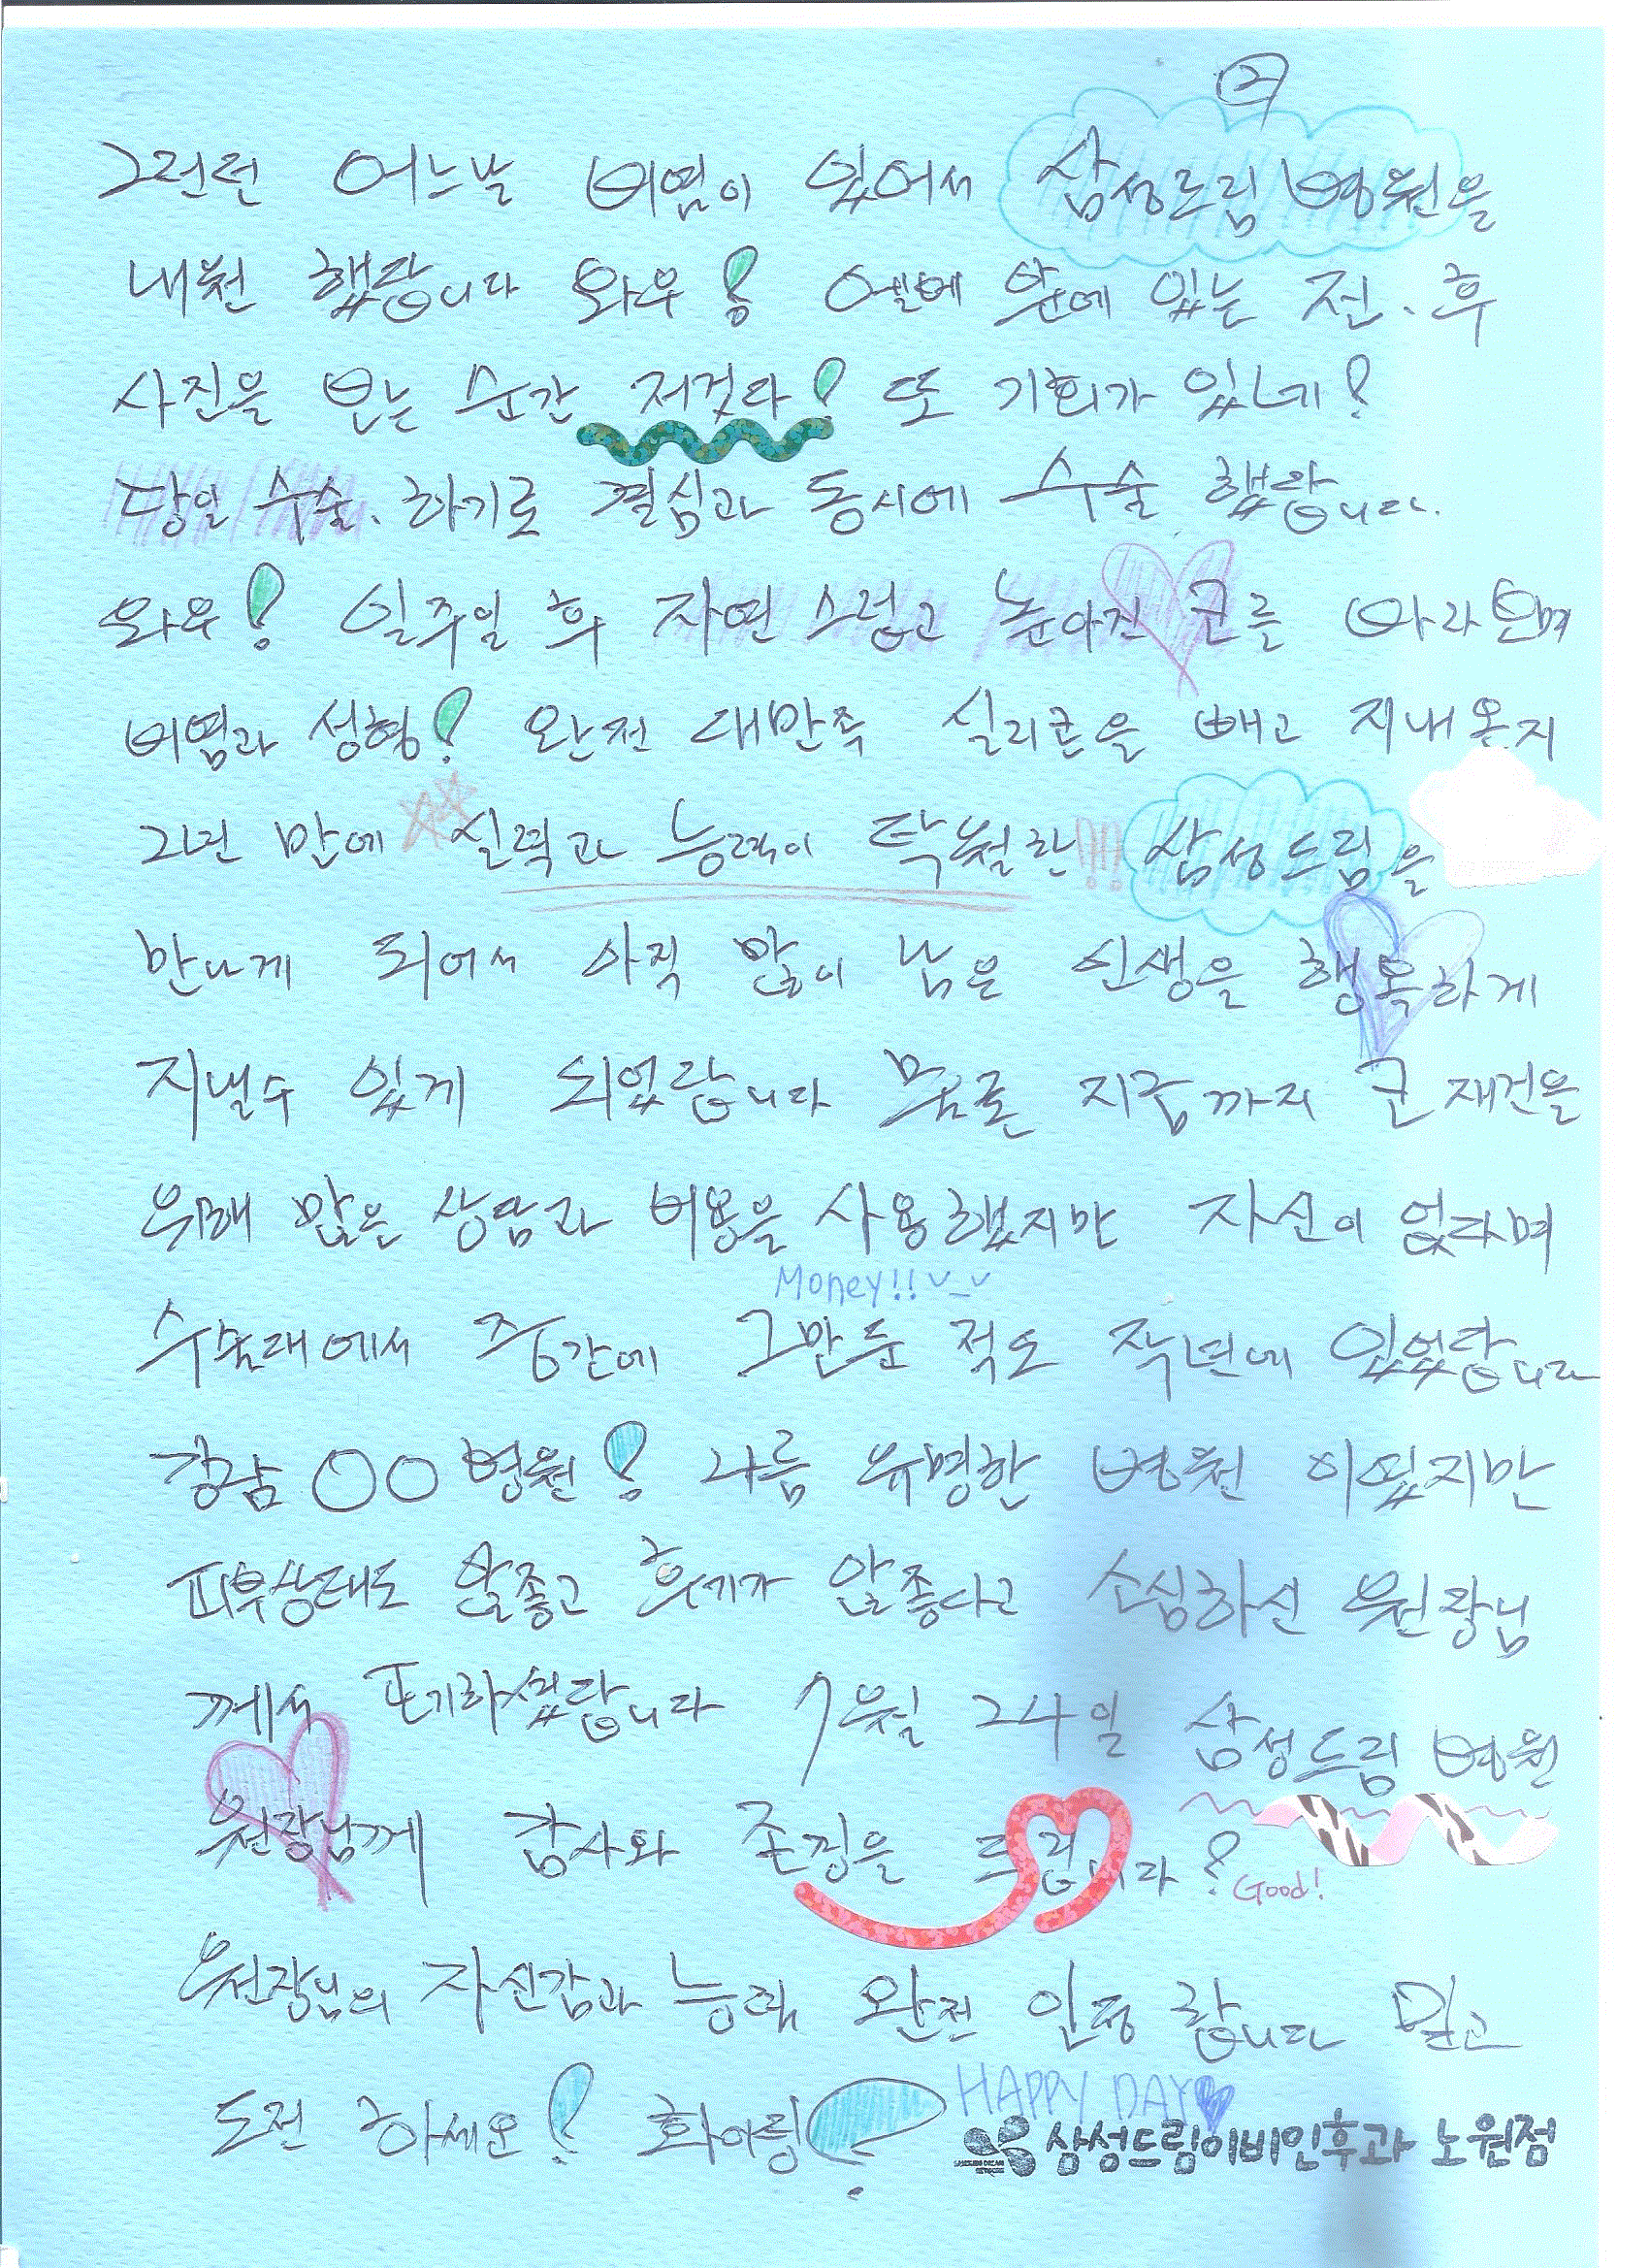 ②
그런던 어느날 비염이 있어서 삼성드림 병원을
내원 했답니다 와우! 엘베 앞에 있는 전.후
사진을 보는 순간 저것다! 또 기회가 있네!
당일 수술. 하기로 결심과 동시에 수술 했답니다.
와우! 일주일 후 자연 스럽고 높아진 코를 바라보며
비염과 성형! 완전 대만족 실리콘을 빼고 지내온지
2년 만에 실력과 능력이 탁월한!! 삼성드림을
만나게 되어서 아직 많이 남은 인생을 행복하게
지낼수 있게 되었답니다 물론 지금까지 코 재건을
위해 많은 상담과 비용을 사용했지만 자신이 없다며
Money!!
수술대에서 중간에 그만둔 적도 작년에 있었답니다
강남 〇〇병원! 나름 유명한 병원 이였지만
피부상태도 않좋고 후기가 않좋다고 소심하신 원장님
께서 포기하셨답니다 7월 24일 삼성드림 병원
원장님께 감사와 존경을 드립니다! Good!
원장님의 자신감과 능력 완전 인정 합니다 믿고
도전 하세요! 화이팅!
HAPPY DAY
삼성드림이비인후과 노원점